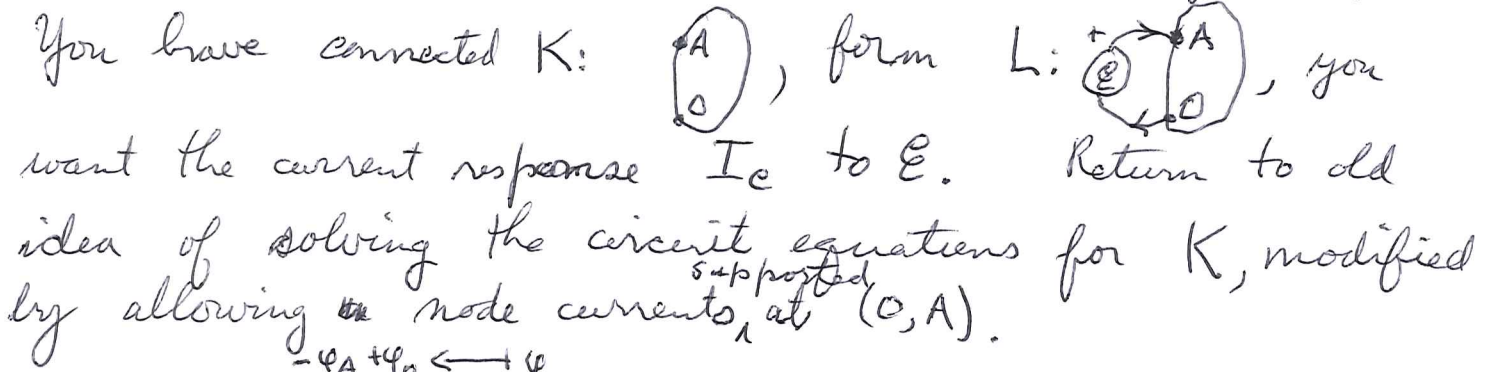 You have connected K: A O , form L: + ℰ A O , you
want the current response I_e to ℰ. Return to old
idea of solving the circuit equations for K, modified
by allowing node currents, supported at (O, A).
-φ_A + φ_O ⟵| φ